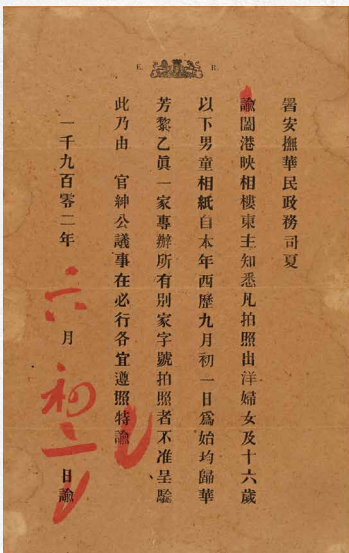 E. R.
署安撫華民政務司夏
諭闔港映相樓東主知悉凡拍照出洋婦女及十六歲
以下男童相紙自本年西歷九月初一日爲始均歸華
芳黎乙眞一家專辦所有別家字號拍照者不准呈驗
此乃由 官紳公議事在必行各宜遵照特諭
一千九百零二年 六 月 初二 日諭